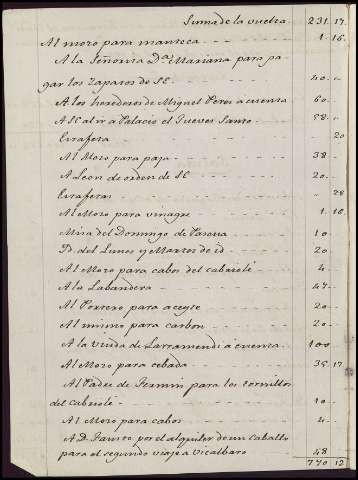 Suma de la vuelta 231. 17.
Al mozo para manteca 1. 16.
A la Señorita Dª. Mariana para pa-
gar los zapatos de SE. 40.
A los herederos de Miguel Peres a cuenta 60.
A SE al ir a Palacio el Jueves Santo 58.
Estafeta 20
Al Mozo para paja 38.
A Leon de orden de SE 20.
Estafetas 28
Al Mozo para vinagre 1. 16.
Misa del Domingo de Pascua 10
Yd. del Lunes y Martes de id 20
Al Mozo para cabos del cabriolé 4
A la Labandera 47.
Al Portero para aceyte 20
Al mismo para carbon 20
A la viuda de Larramendi a cuenta 100
Al Mozo para cebada 35 17
Al Padre de Fermin para los tornillos
del cabriolé 10
Al Mozo para cabos 4
A D. Fausto por el alquiler de un caballo
para el segundo viaje a Vicalbaro 48
770 12